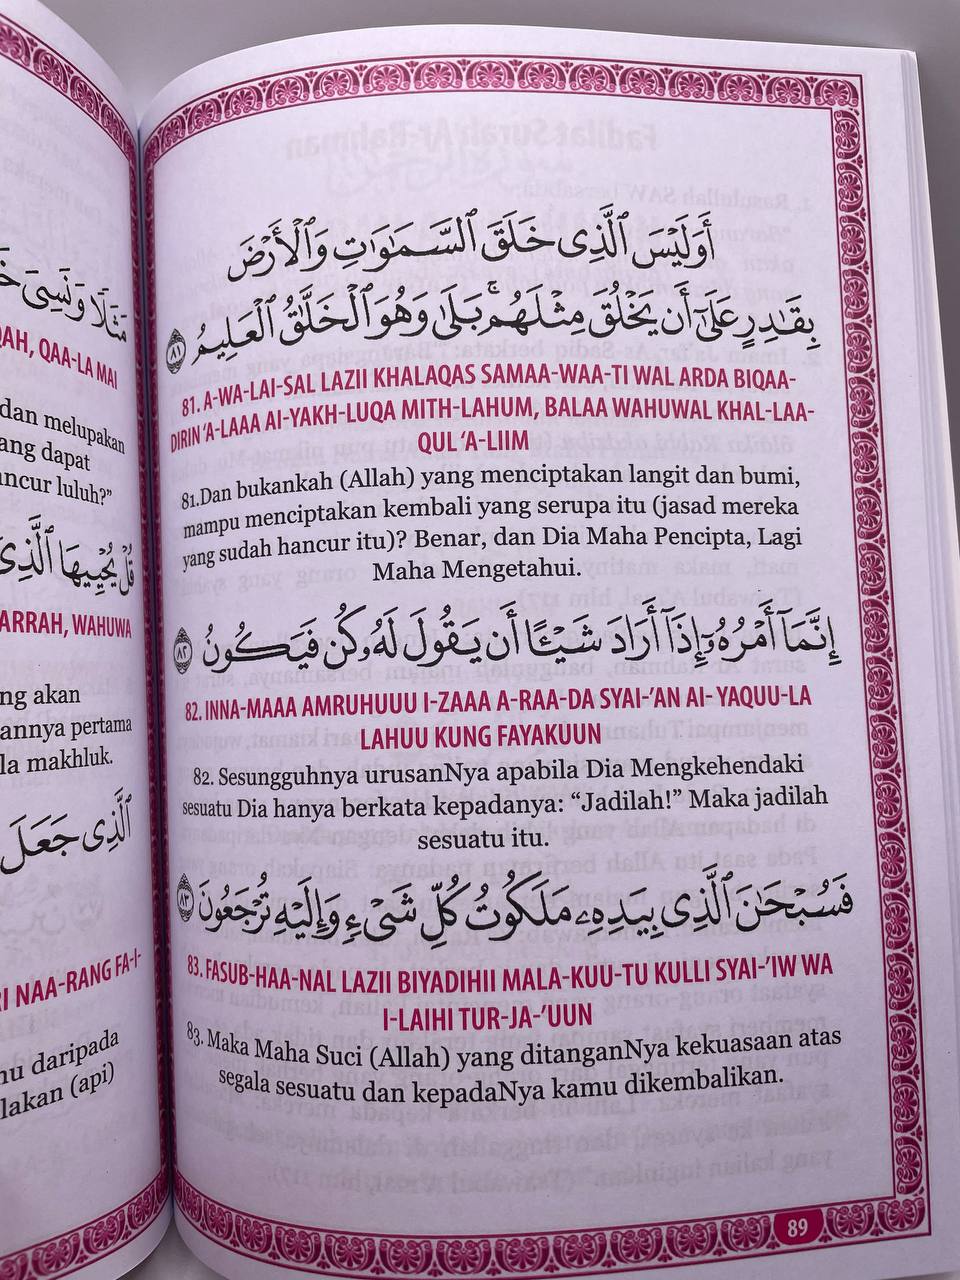 مَثَلًا وَنَسِىَ
QAH, QAA-LA MAI
dan melupakan
ang dapat
ancur luluh?”
قُلْ يُحْيِيهَا ٱلَّذِىٓ
ARRAH, WAHUWA
ng akan
annya pertama
la makhluk.
ٱلَّذِى جَعَلَ
RI NAA-RANG FA-I-
nu daripada
lakan (api)
أَوَلَيْسَ ٱلَّذِى خَلَقَ ٱلسَّمَٰوَٰتِ وَٱلْأَرْضَ
بِقَٰدِرٍ عَلَىٰٓ أَن يَخْلُقَ مِثْلَهُم ۚ بَلَىٰ وَهُوَ ٱلْخَلَّٰقُ ٱلْعَلِيمُ ٨١
81. A-WA-LAI-SAL LAZII KHALAQAS SAMAA-WAA-TI WAL ARDA BIQAA-
DIRIN ‘A-LAAA AI-YAKH-LUQA MITH-LAHUM, BALAA WAHUWAL KHAL-LAA-
QUL ‘A-LIIM
81.Dan bukankah (Allah) yang menciptakan langit dan bumi,
mampu menciptakan kembali yang serupa itu (jasad mereka
yang sudah hancur itu)? Benar, dan Dia Maha Pencipta, Lagi
Maha Mengetahui.
إِنَّمَآ أَمْرُهُۥٓ إِذَآ أَرَادَ شَيْـًٔا أَن يَقُولَ لَهُۥ كُن فَيَكُونُ ٨٢
82. INNA-MAAA AMRUHUUU I-ZAAA A-RAA-DA SYAI-’AN AI- YAQUU-LA
LAHUU KUNG FAYAKUUN
82. Sesungguhnya urusanNya apabila Dia Mengkehendaki
sesuatu Dia hanya berkata kepadanya: “Jadilah!” Maka jadilah
sesuatu itu.
فَسُبْحَٰنَ ٱلَّذِى بِيَدِهِۦ مَلَكُوتُ كُلِّ شَىْءٍ وَإِلَيْهِ تُرْجَعُونَ ٨٣
83. FASUB-HAA-NAL LAZII BIYADIHII MALA-KUU-TU KULLI SYAI-’IW WA
I-LAIHI TUR-JA-’UUN
83. Maka Maha Suci (Allah) yang ditanganNya kekuasaan atas
segala sesuatu dan kepadaNya kamu dikembalikan.
89